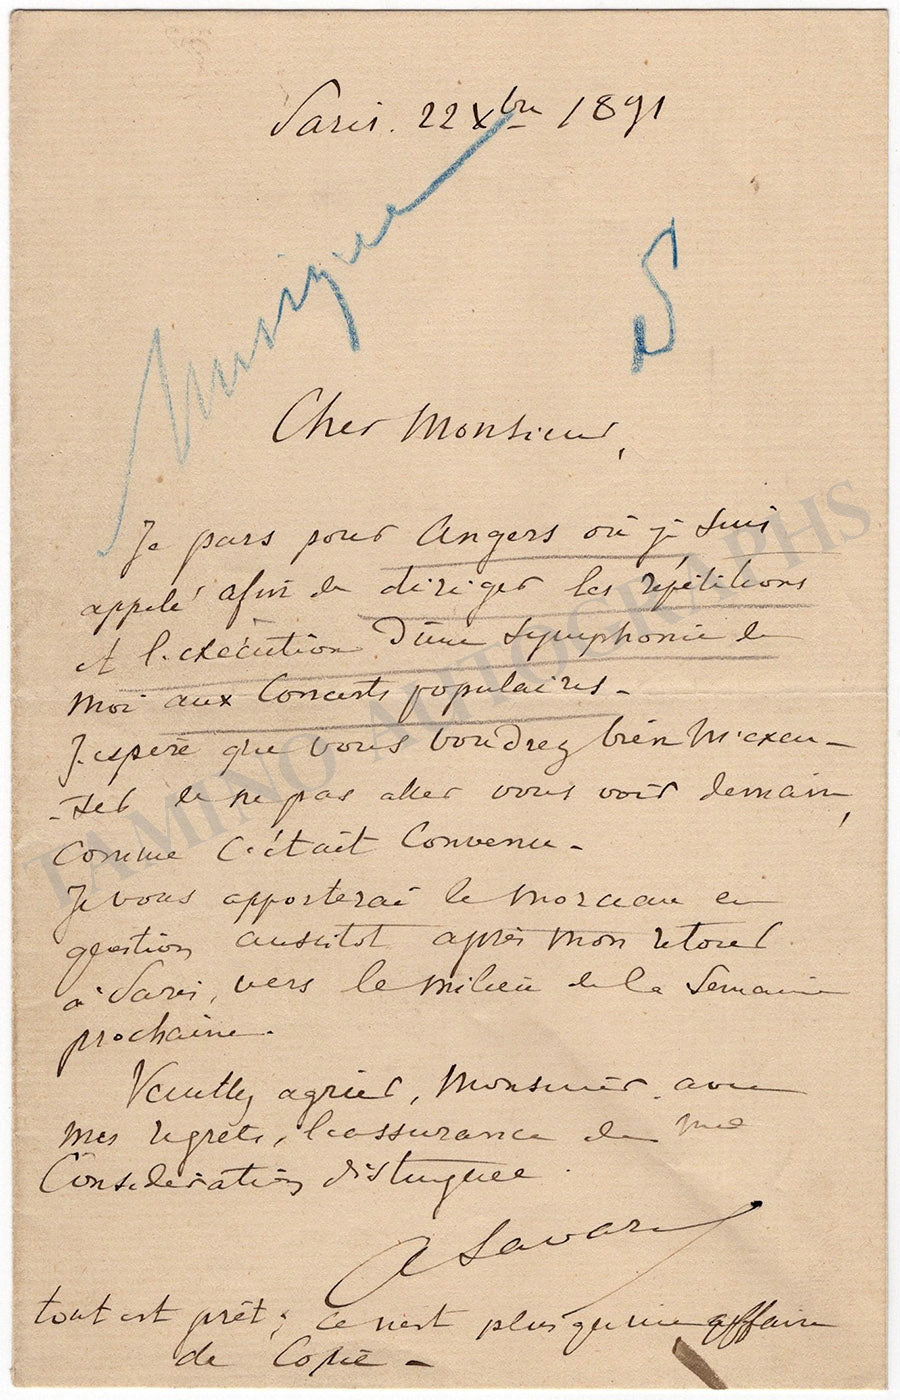 Paris. 22 Xbre 1891
Musique
S
Cher Monsieur,
Je pars pour Angers où je suis
appelé afin de diriger les répétitions
et l'exécution d'une Symphonie de
moi aux Concerts populaires -
J'espère que vous voudrez bien m'excu-
-ser de ne pas aller vous voir demain,
comme c'était convenu -
Je vous apporterai le morceau en
question aussitôt après mon retour
à Paris, vers le milieu de la Semaine
prochaine.
Veuillez agréer, Monsieur, avec
mes regrets, l'assurance de ma
Considération distinguée.
A Savard
tout est prêt ; ce n'est plus qu'une affaire
de Copie -
TAMINO AUTOGRAPHS